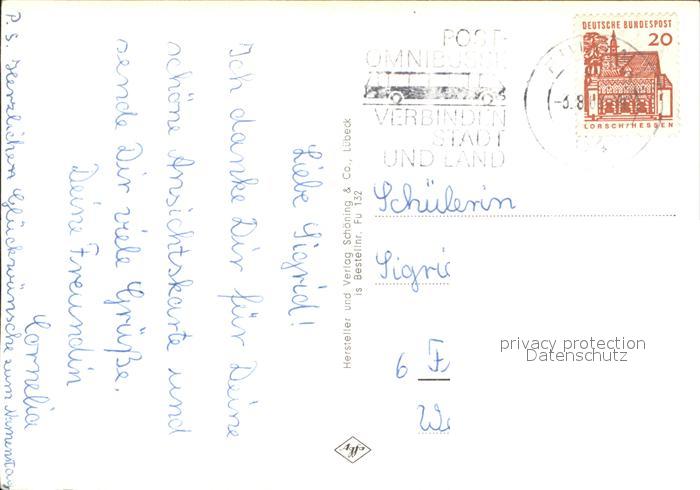 Liebe Sigrid!
Ich danke Dir für Deine
schöne Ansichtskarte und
sende Dir viele Grüße.
Deine Freundin
Cornelia
P. S. Herzlichen Glückwünsche zum Namenstag
Hersteller und Verlag Schöning & Co., Lübeck
is Bestellnr. Fu 132
POST-
OMNIBUSSE
VERBINDEN
STADT
UND LAND
-3.8.
DEUTSCHE BUNDESPOST
20
LORSCH/HESSEN
Schülerin
Sigri
6 F
We
privacy protection
Datenschutz